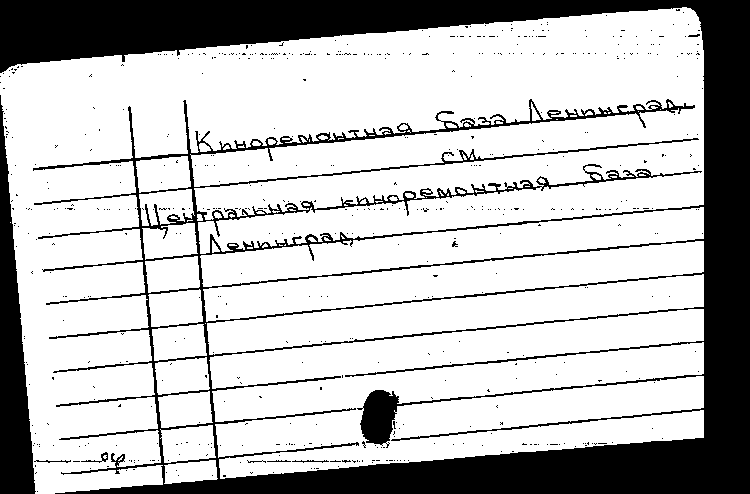 Киноремонтная база. Ленинград.
см.
Центральная киноремонтная база.
Ленинград.